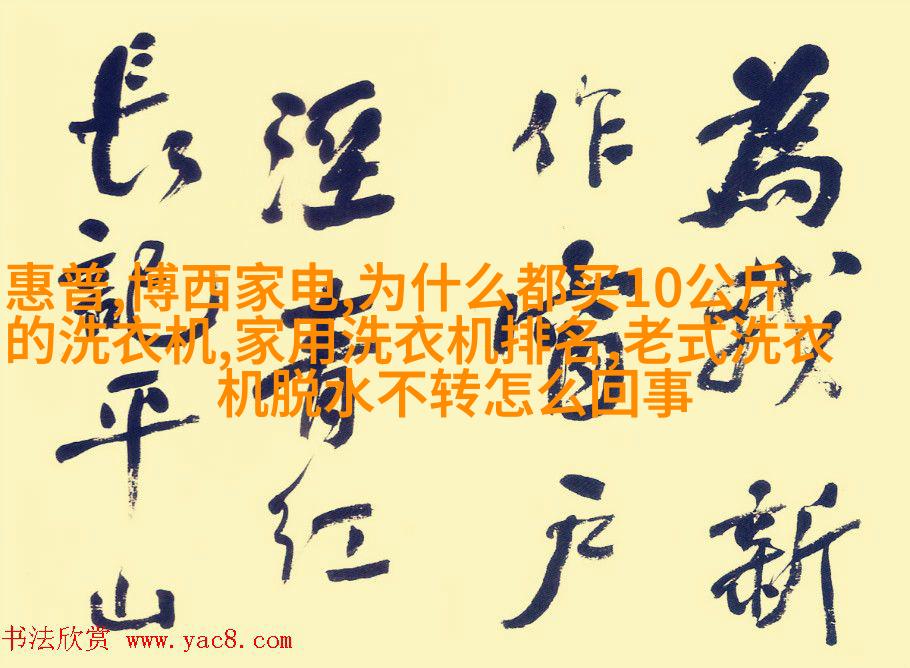 為我新
作窗户
溼青红
長記平山
惠普,博西家电,为什么都买10公斤
的洗衣机,家用洗衣机排名,老式洗衣
机脱水不转怎么回事
书法欣赏 www.yac8.com